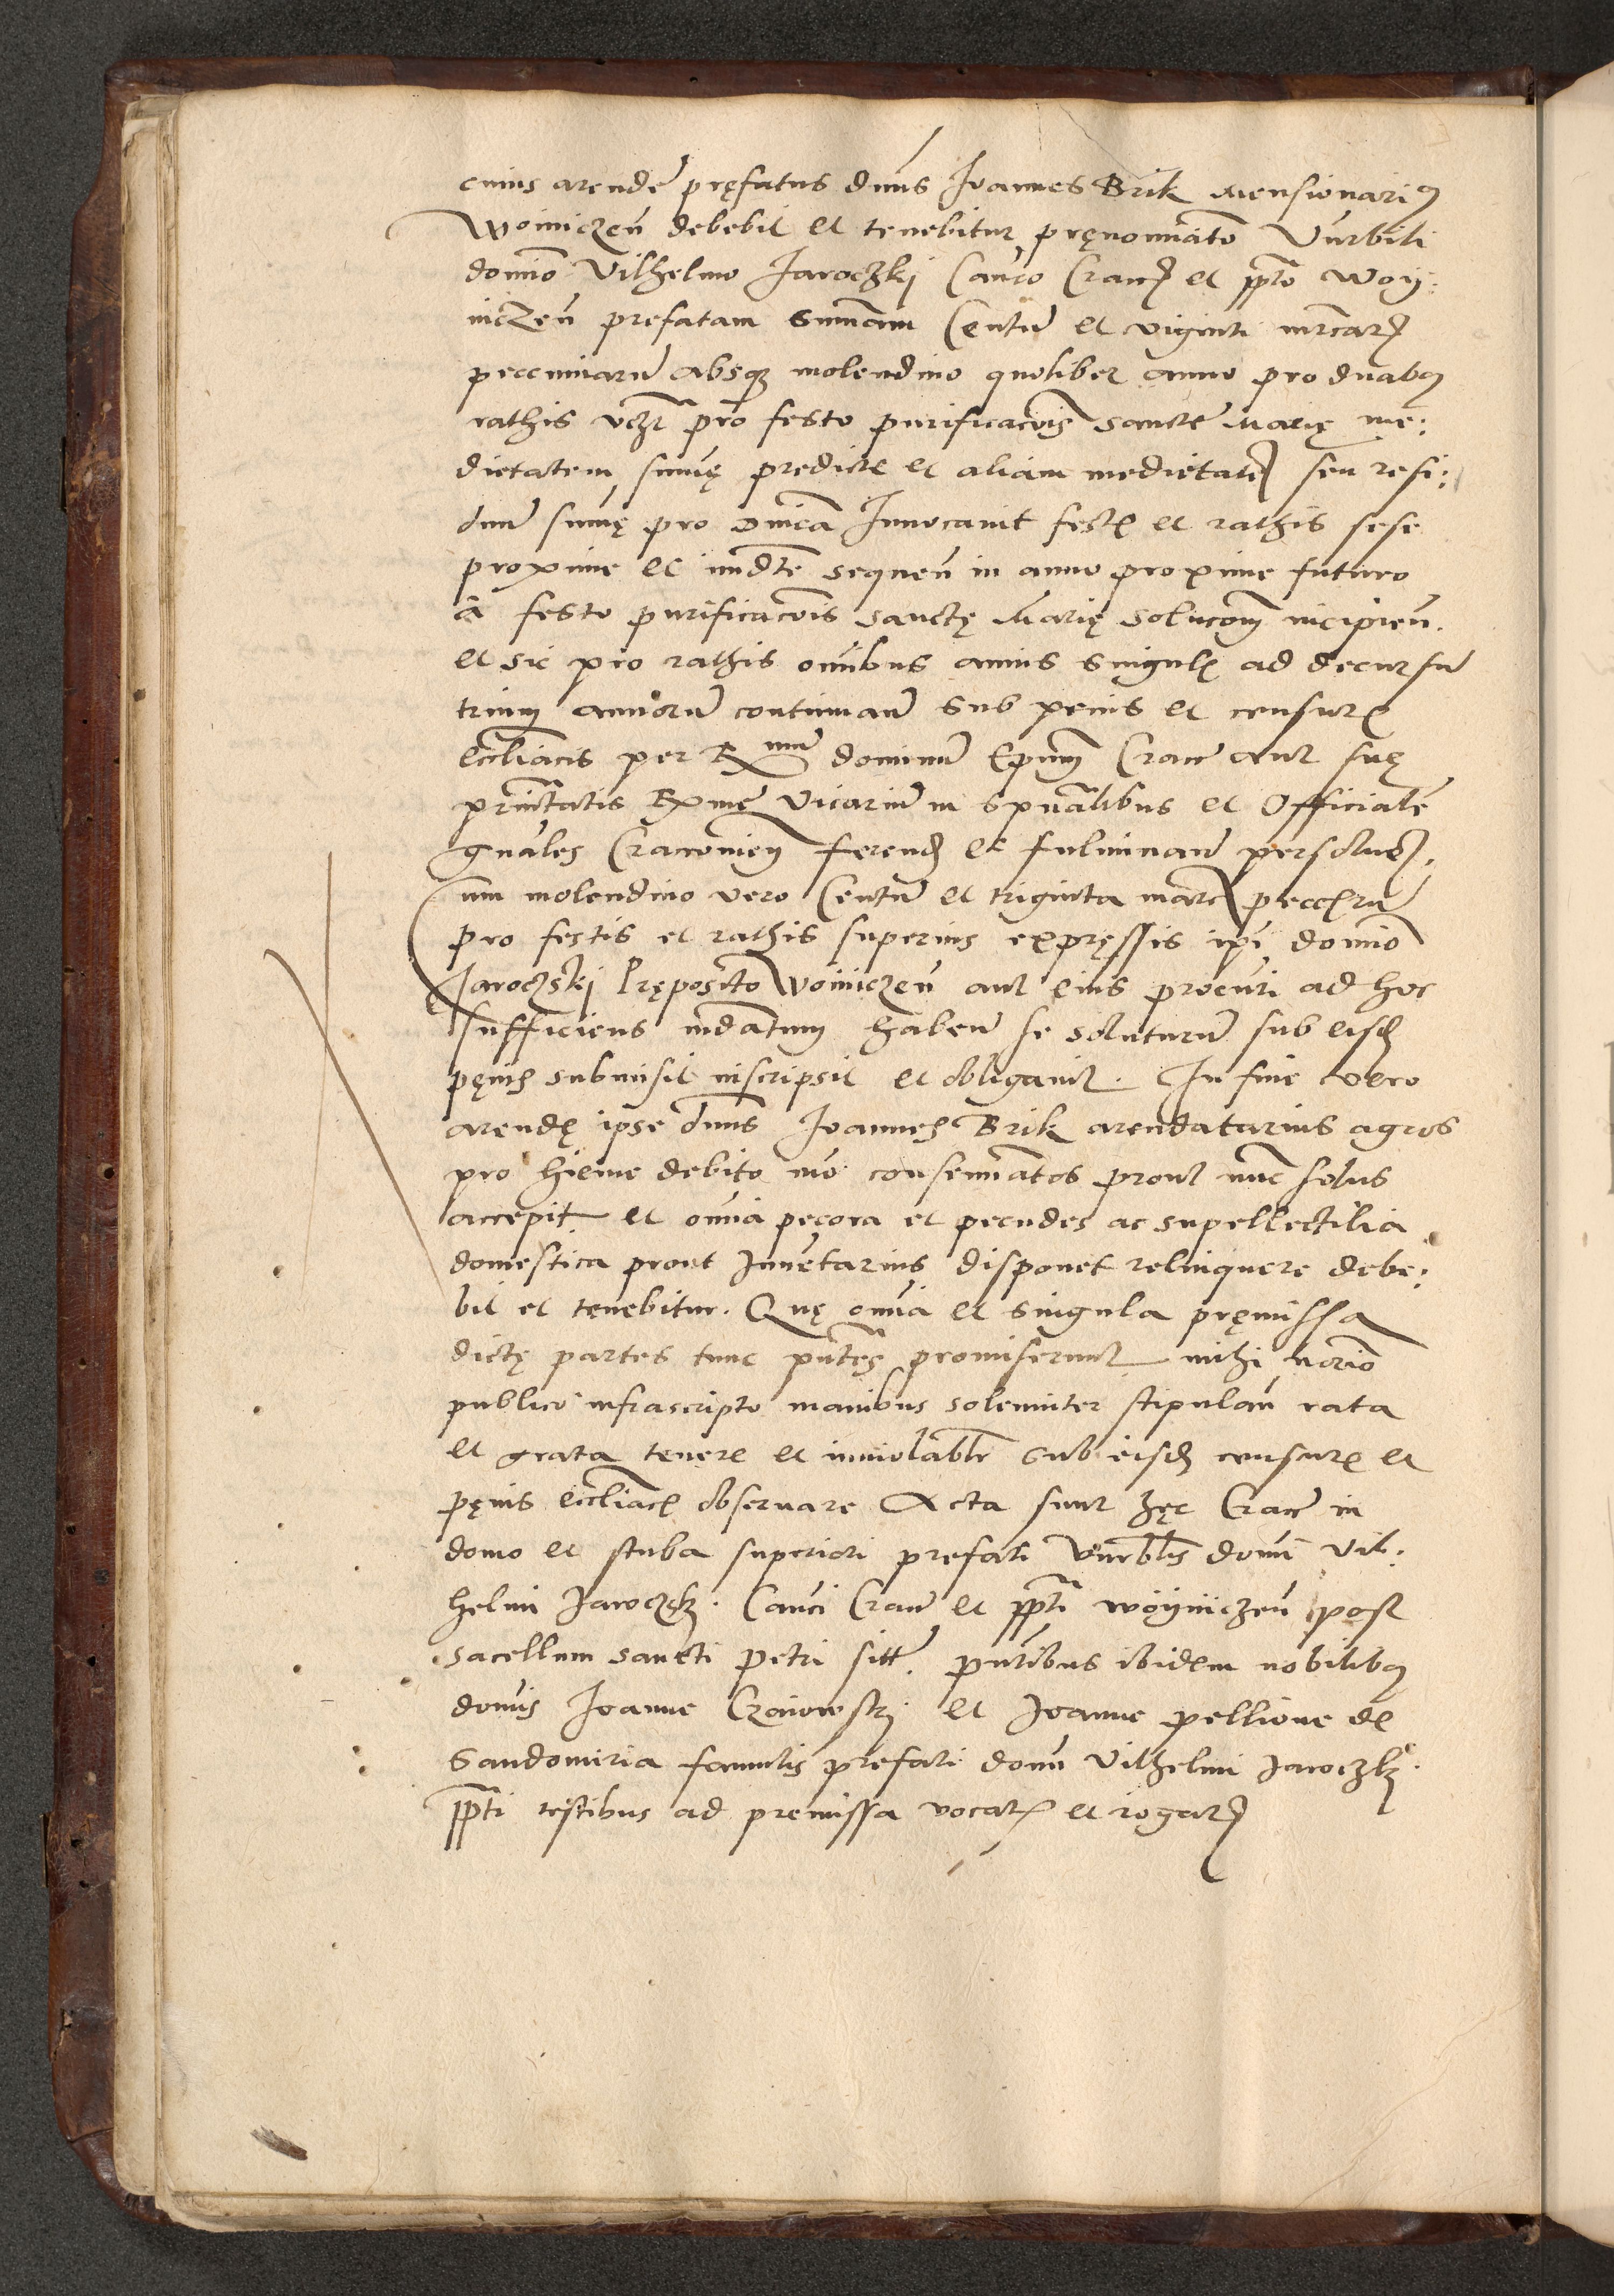 cuius arendę pręfatus dnus Ioannes Brik Mensionarius
Woiniczeñ debebit et tenebitur pręnominato Vnrbili
domino Vilhelmo Jaroczkj Canco Cracc et ppto Woy:
niczeñ prefatam summam Centu et viginti mrcar
peccuniaru absque molendino quolibet anno pro duabus
rathis vczt pro festo purificacois sancte Marię me:
dietatem sumę predicte et aliam medietate seu resi:
duu sumę pro Dnica Inuocauit festis et rathis sese
proxime et imdte sequeñ in anno proxime futuro
a festo purificacois sanctę Marię solucom incipieñ.
et sic pro rathis omibus annis singulis ad decursu
trium annoru continuan sub penis et censuris
eccliacis per Rmu dominu Epum Cracc aut suę
prnitatis Rxmę Vicariu in spualibus et Officiale
gnales Cracouien ferend et fulminan persoluet,
Cum molendino vero Centu et triginta marc pecc̃ru
pro festis et rathis superius expręssis ipi domino
Jaroczskj Pręposito Woiniczeñ aut eius procuri ad hoc
sufficiens mdatum haben se soluturu sub eisd
pęnis submisit inscripsit et obligauit. In fine vero
arendę ipse dnus Ioannes Brik arendatarius agros
pro hieme debito mo conseminatos prout nuc solus
accepit et omia pecora et pecudes ac supellectilia
domestica prout Inuetarius disponet relinquere debe:
bit et tenebitur. Quę omia et singula pręmissa
dictę partes tunc pntes promiserunt mihi norio
publico infrascripto manibus solemniter stipulan rata
et grata tenere et inuiolablr sub eisd censuris et
pęnis eccliacis obseruare Acta sunt hęc Cracc in
domo et stuba superiori prefati Vnrblis domi Vil:
helmi Jaroczkj. Canci Cracc et ppti woyniczeñ post
sacellum sancti Petri sitt. pntibus ibidem nobilibus
domis Ioanne Czaiowskj et Joanne pellione de
Sandomiria famulis prefati domi Vilhelmi Jaroczkj.
ppti testibus ad premissa vocatis et rogatis